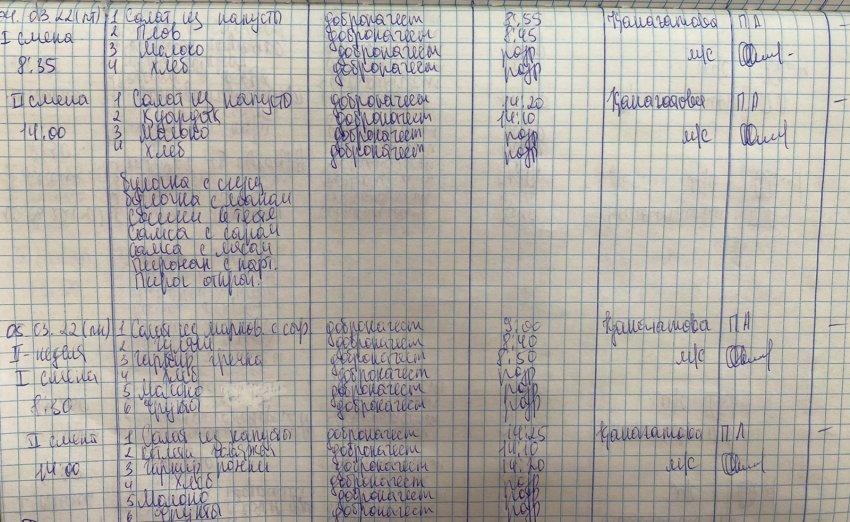 04.03.22(пт) 1 Салат из капусты доброкачест 8.55 Канагатова ПА –
I смена 2 Плов доброкачест 8.45
3 Молоко доброкачест разр м/с
8.35 4 хлеб доброкачест разр
II смена 1 Салат из капусты доброкачест 14.20 Канагатова ПА –
2 доброкачест 14.10
14.00 3 Молоко доброкачест разр м/с
4 хлеб доброкачест разр
булочка с
булочка с
сосиски в тесте
Самса с сыром
Самса с мясом
Пирожки с карт.
Пирог открыт.
03.22(пн) 1 Салат из морков с сыр доброкачест 9.00 Канагатова ПА –
II-неделя 2 гуляш доброкачест 8.40
3 гарнир гречка доброкачест 8.50 м/с
I смена 4 хлеб доброкачест разр
5 Молоко доброкачест разр
8.30 6 фрукты доброкачест разр
II смена 1 Салат из капусты доброкачест 14.25 Канагатова ПА –
2 доброкачест 14.10
14.00 3 гарнир рожки доброкачест 14.20 м/с
4 хлеб доброкачест разр
5 Молоко доброкачест разр
6 фрукты доброкачест разр